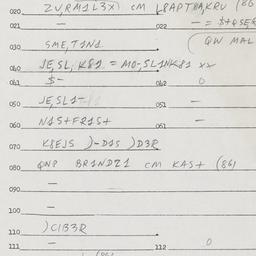 020 ZV,RM1L3X) CM L8APTHAKRU (86
021 — 022 — = $+QSER
(QW MAL
030 SME,T1N1.
040 JE,SL,K81 = MO-SL1NK81 XX
041 $- 042 0
050 JE,SL1- 051 —
060 N1S+FR1S+ 061 —
070 K8EJS )-D1S )D3R
080 QN8 BR1NDZ1 CM KAS+ (86)
090 —
100 —
110 )C1B3R
111 — 112 0